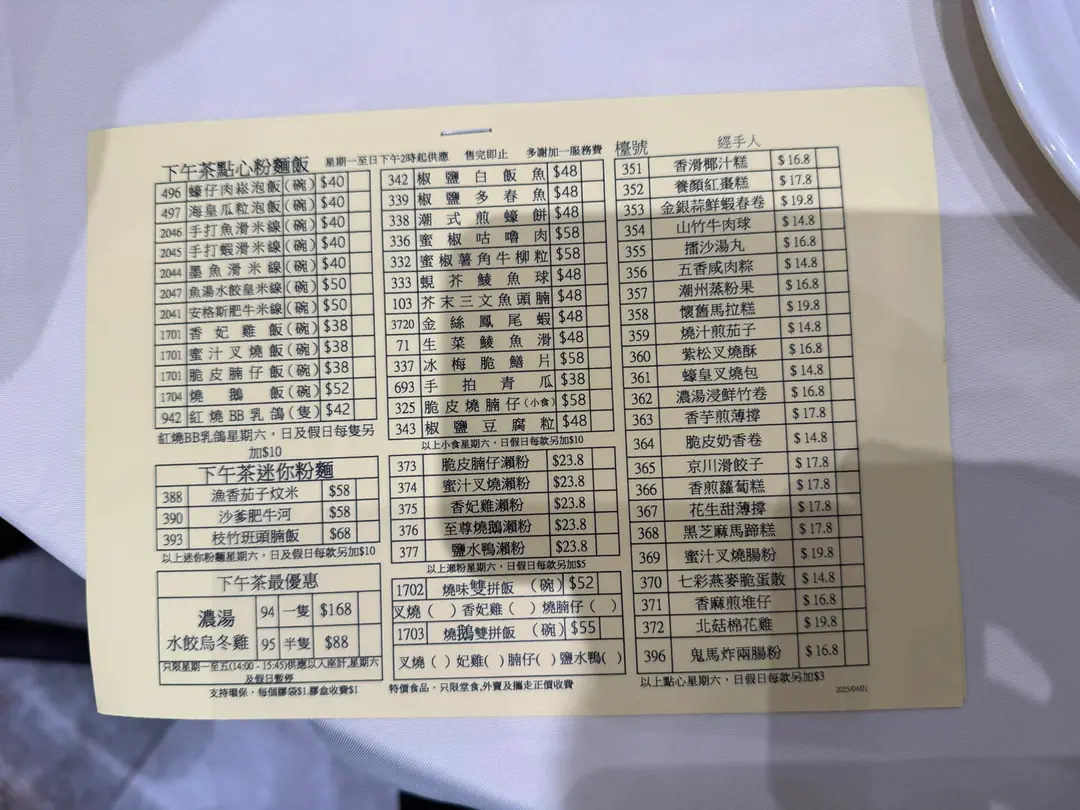 下午茶點心粉麵飯 星期一至日下午2時起供應 售完即止 多謝加一服務費 檯號 經手人
496 蠔仔肉崧泡飯(碗) $40
497 海皇瓜粒泡飯(碗) $40
2046 手打魚滑米線(碗) $40
2045 手打蝦滑米線(碗) $40
2044 墨魚滑米線(碗) $40
2047 魚湯水餃皇米線(碗) $50
2041 安格斯肥牛米線(碗) $50
1701 香妃雞飯(碗) $38
1701 蜜汁叉燒飯(碗) $38
1701 脆皮腩仔飯(碗) $38
1704 燒鵝飯(碗) $52
942 紅燒BB乳鴿(隻) $42
紅燒BB乳鴿星期六，日及假日每隻另
加$10
下午茶迷你粉麵
388 漁香茄子炆米 $58
390 沙爹肥牛河 $58
393 枝竹班頭腩飯 $68
以上迷你粉麵星期六，日及假日每款另加$10
下午茶最優惠
濃湯 94 一隻 $168
水餃烏冬雞 95 半隻 $88
只限星期一至五(14:00 - 15:45)供應以入座計,星期六
及假日暫停
支持環保，每個膠袋$1,膠盒收費$1
342 椒鹽白飯魚 $48
339 椒鹽多春魚 $48
338 潮式煎蠔餅 $48
336 蜜椒咕嚕肉 $58
332 蜜椒薯角牛柳粒 $58
333 蜆芥鯪魚球 $48
103 芥末三文魚頭腩 $48
3720 金絲鳳尾蝦 $48
71 生菜鯪魚滑 $48
337 冰梅脆鱔片 $58
693 手拍青瓜 $38
325 脆皮燒腩仔(小食) $58
343 椒鹽豆腐粒 $48
以上小食星期六，日假日每款另加$10
373 脆皮腩仔瀨粉 $23.8
374 蜜汁叉燒瀨粉 $23.8
375 香妃雞瀨粉 $23.8
376 至尊燒鵝瀨粉 $23.8
377 鹽水鴨瀨粉 $23.8
以上瀨粉星期六，日假日每款另加$5
1702 燒味雙拼飯 (碗) $52
叉燒( ) 香妃雞( ) 燒腩仔( )
1703 燒鵝雙拼飯 (碗) $55
叉燒( ) 妃雞( ) 腩仔( ) 鹽水鴨( )
特價食品，只限堂食,外賣及攜走正價收費
351 香滑椰汁糕 $16.8
352 養顏紅棗糕 $17.8
353 金銀蒜鮮蝦春卷 $19.8
354 山竹牛肉球 $14.8
355 擂沙湯丸 $16.8
356 五香咸肉粽 $14.8
357 潮州蒸粉果 $16.8
358 懷舊馬拉糕 $19.8
359 燒汁煎茄子 $14.8
360 紫松叉燒酥 $16.8
361 蠔皇叉燒包 $14.8
362 濃湯浸鮮竹卷 $16.8
363 香芋煎薄撐 $17.8
364 脆皮奶香卷 $14.8
365 京川滑餃子 $17.8
366 香煎蘿蔔糕 $17.8
367 花生甜薄撐 $17.8
368 黑芝麻馬蹄糕 $17.8
369 蜜汁叉燒腸粉 $19.8
370 七彩燕麥脆蛋散 $14.8
371 香麻煎堆仔 $16.8
372 北菇棉花雞 $19.8
396 鬼馬炸兩腸粉 $16.8
以上點心星期六，日假日每款另加$3
2025/04/01